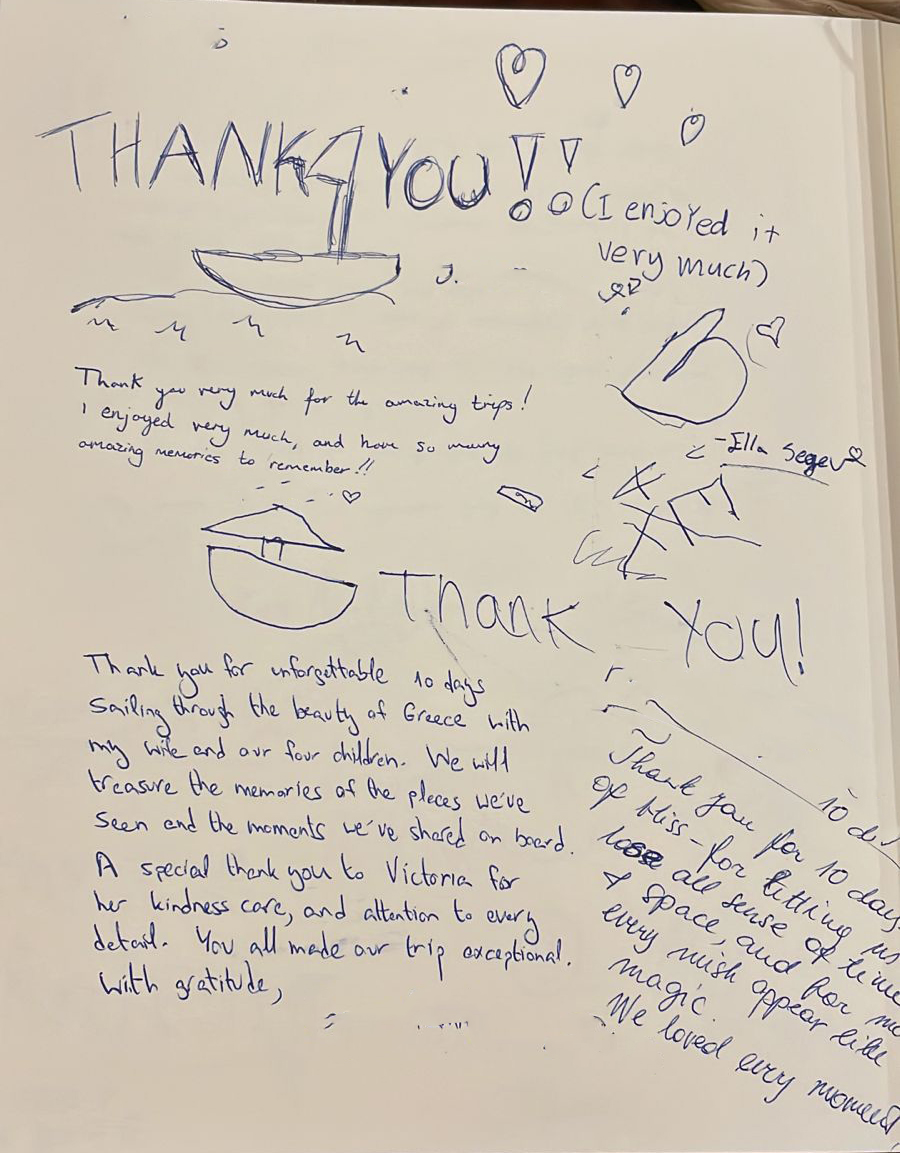 THANK YOU!!
(I enjoyed it
very much)
Thank you very much for the amazing trips!
I enjoyed very much, and have so many
amazing memories to remember!!
-Ella Segev
Thank You!
Thank you for unforgettable 10 days
Sailing through the beauty of Greece with
my wife and our four children. We will
treasure the memories of the places we've
seen and the moments we've shared on board.
A special thank you to Victoria for
her kindness care, and attention to every
detail. You all made our trip exceptional.
With gratitude,
Thank you for 10 days
of bliss - for letting us
lose all sense of time
& space, and for
every wish appear like
magic.
We loved every moment,